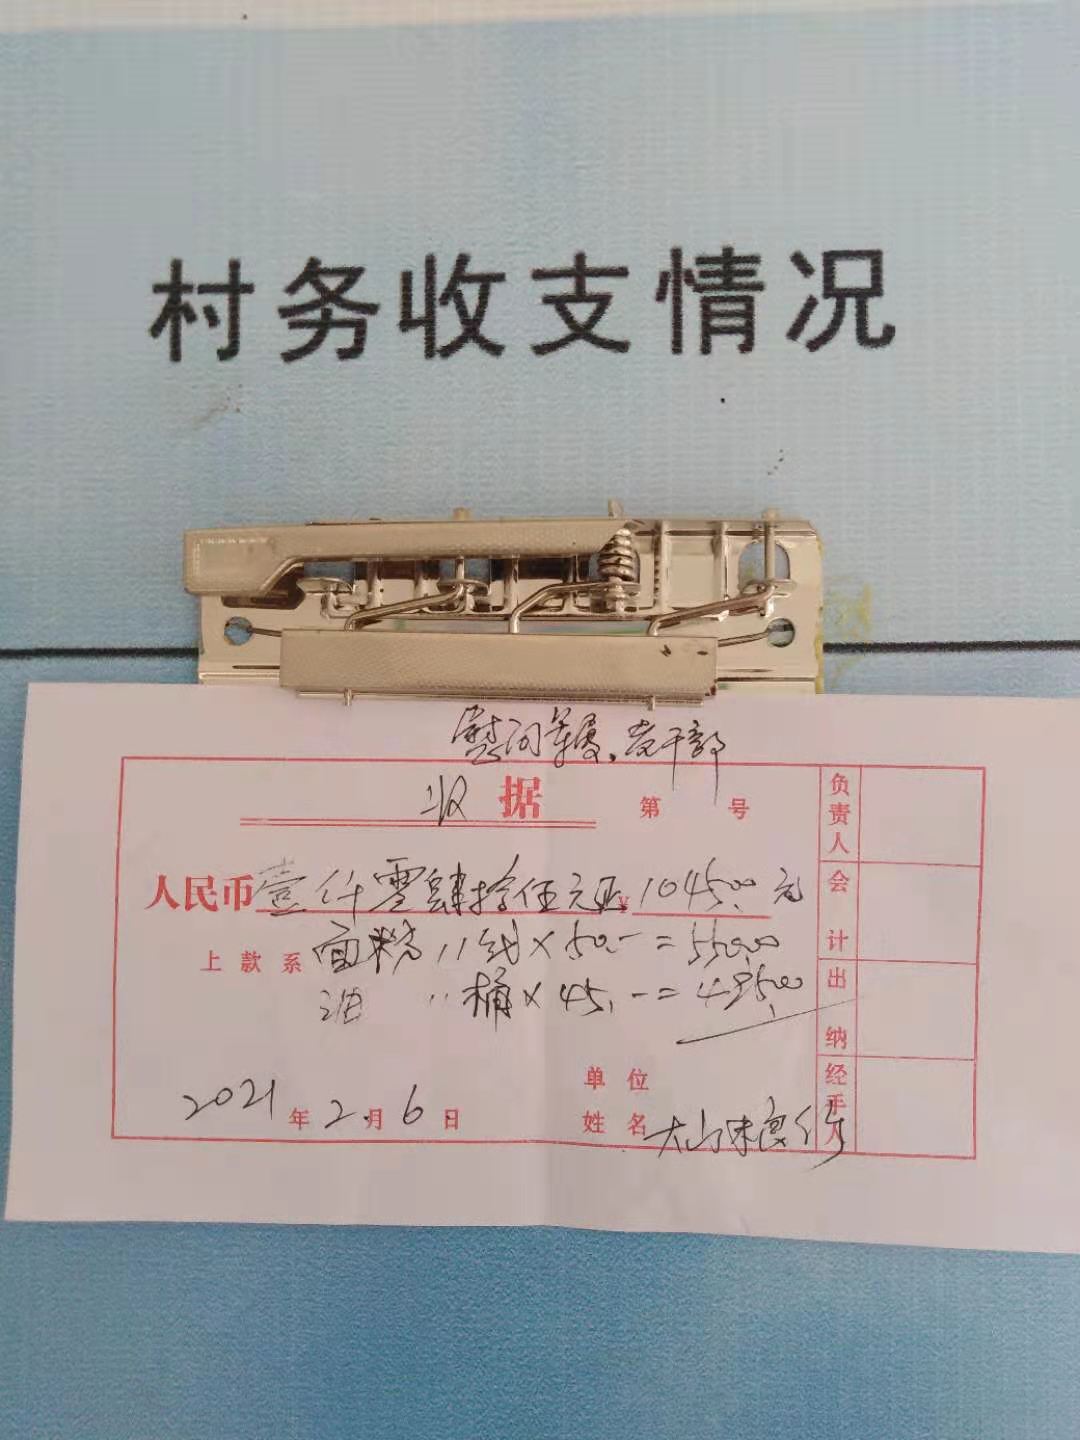 村务收支情况
慰问军属、老干部
收据 第 号
人民币壹仟零肆拾伍元正 ¥1045.00元
上款系 面粉 11袋×50.-=550.00
油 11桶×45.-=495.00
单位
2021年2月6日 姓名
负责人
会计
出纳
经手人